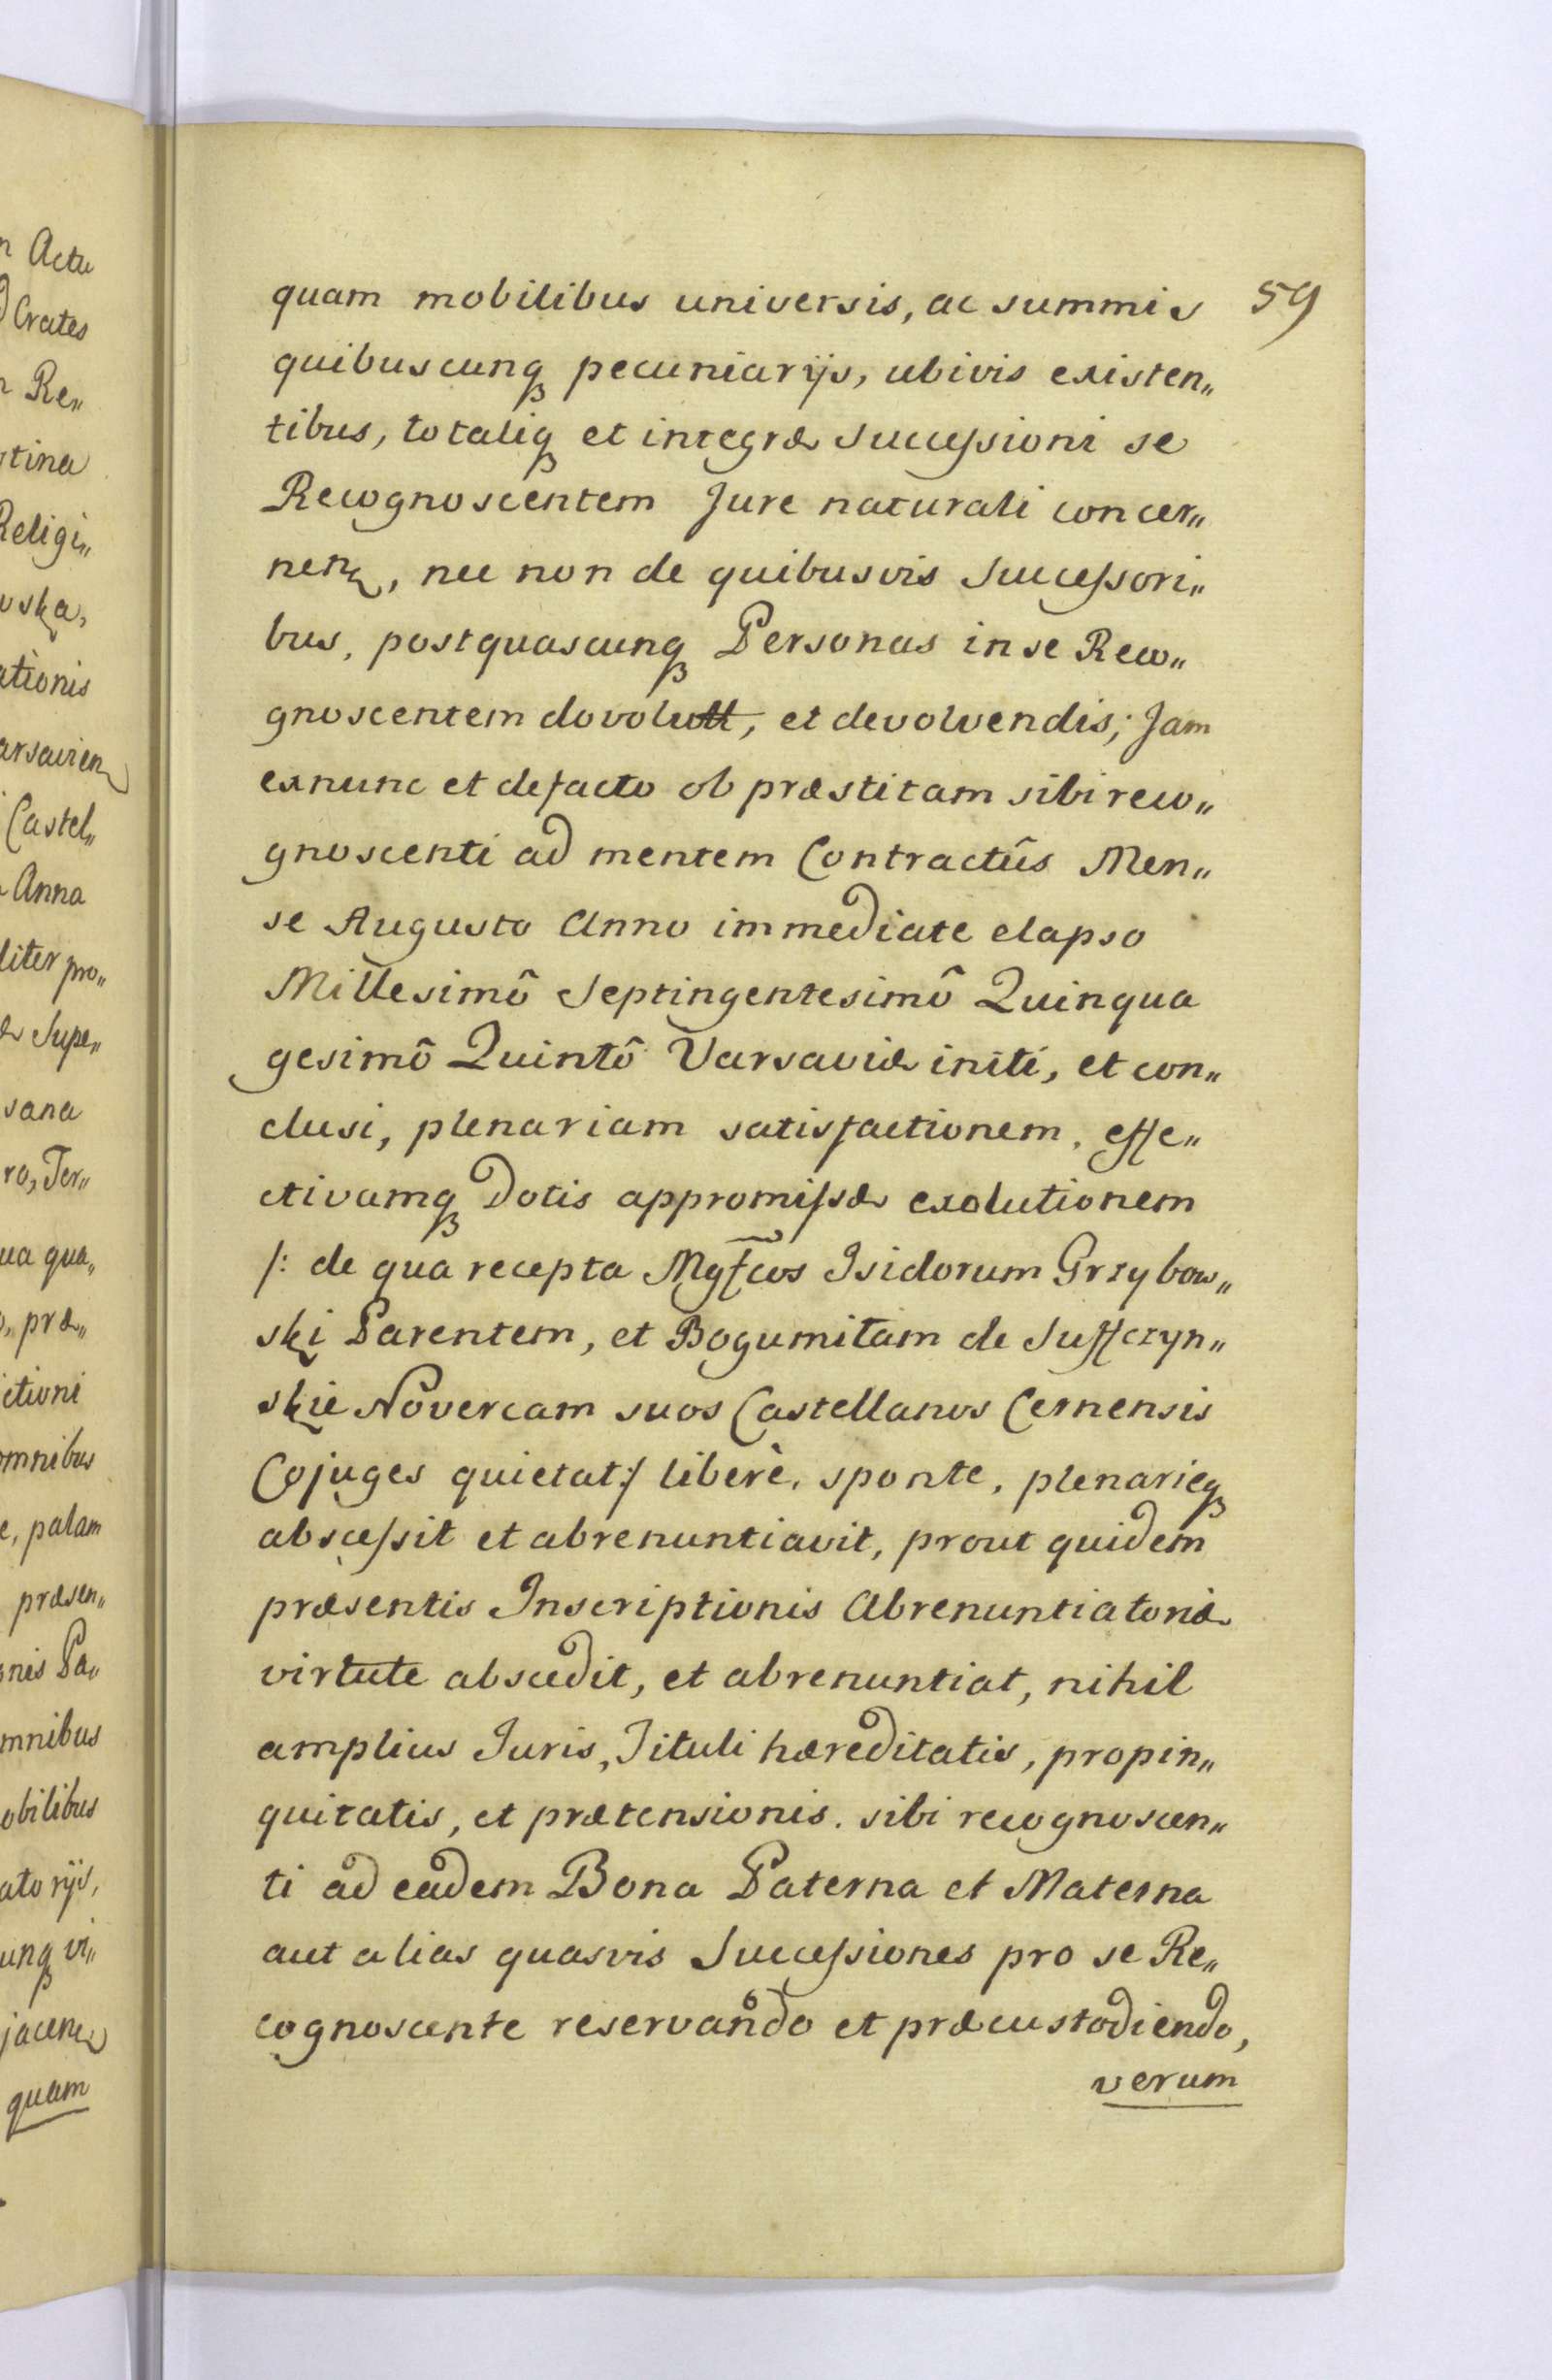 n Actu
d Crates
n Re„
stina
Religi„
vska,
ationis
arsavien
Castel„
Anna
liter pro„
Supe„
sana
ro, Ter„
ua qua„
præ„
ctioni
omnibus
e, palam
præsen„
nis Pa„
mnibus
obilibus
atorijs,
unq vi„
jacen
quam
59
quam mobilibus universis, ac summis
quibuscunq pecuniarijs, ubivis existen„
tibus, totaliq et integræ Successioni se
Recognoscentem Jure naturali concer„
nen, nec non de quibusvis Successori„
bus, postquascunq Personas in se Reco„
gnoscentem dovolutt, et devolvendis; Jam
exnunc et defacto ob præstitam sibi reco„
gnoscenti ad mentem Contractûs Men„
se Augusto Anno immediate elapso
Millesimô Septingentesimô Quinqua
gesimô Quintô Varsaviæ initi, et con„
clusi, plenariam satisfactionem, effe„
ctivamq Dotis appromissæ exolutionem
/: de qua recepta Mgfcos Isidorum Grzybow„
ski Parentem, et Bogumiłam de Suffczyn„
skie Novercam suos Castellanos Cernensis
Cojuges quietat:/ liberè, sponte, plenarieq
abscessit et abrenuntiavit, prout quidem
præsentis Inscriptionis Abrenuntiatoriæ
virtute abscedit, et abrenuntiat, nihil
amplius Juris, Tituli hæreditatis, propin„
quitatis, et prætensionis. sibi recognoscen„
ti ad eadem Bona Paterna et Materna
aut alias quasvis Successiones pro se Re„
cognoscente reservando et præcustodiendo,
verum